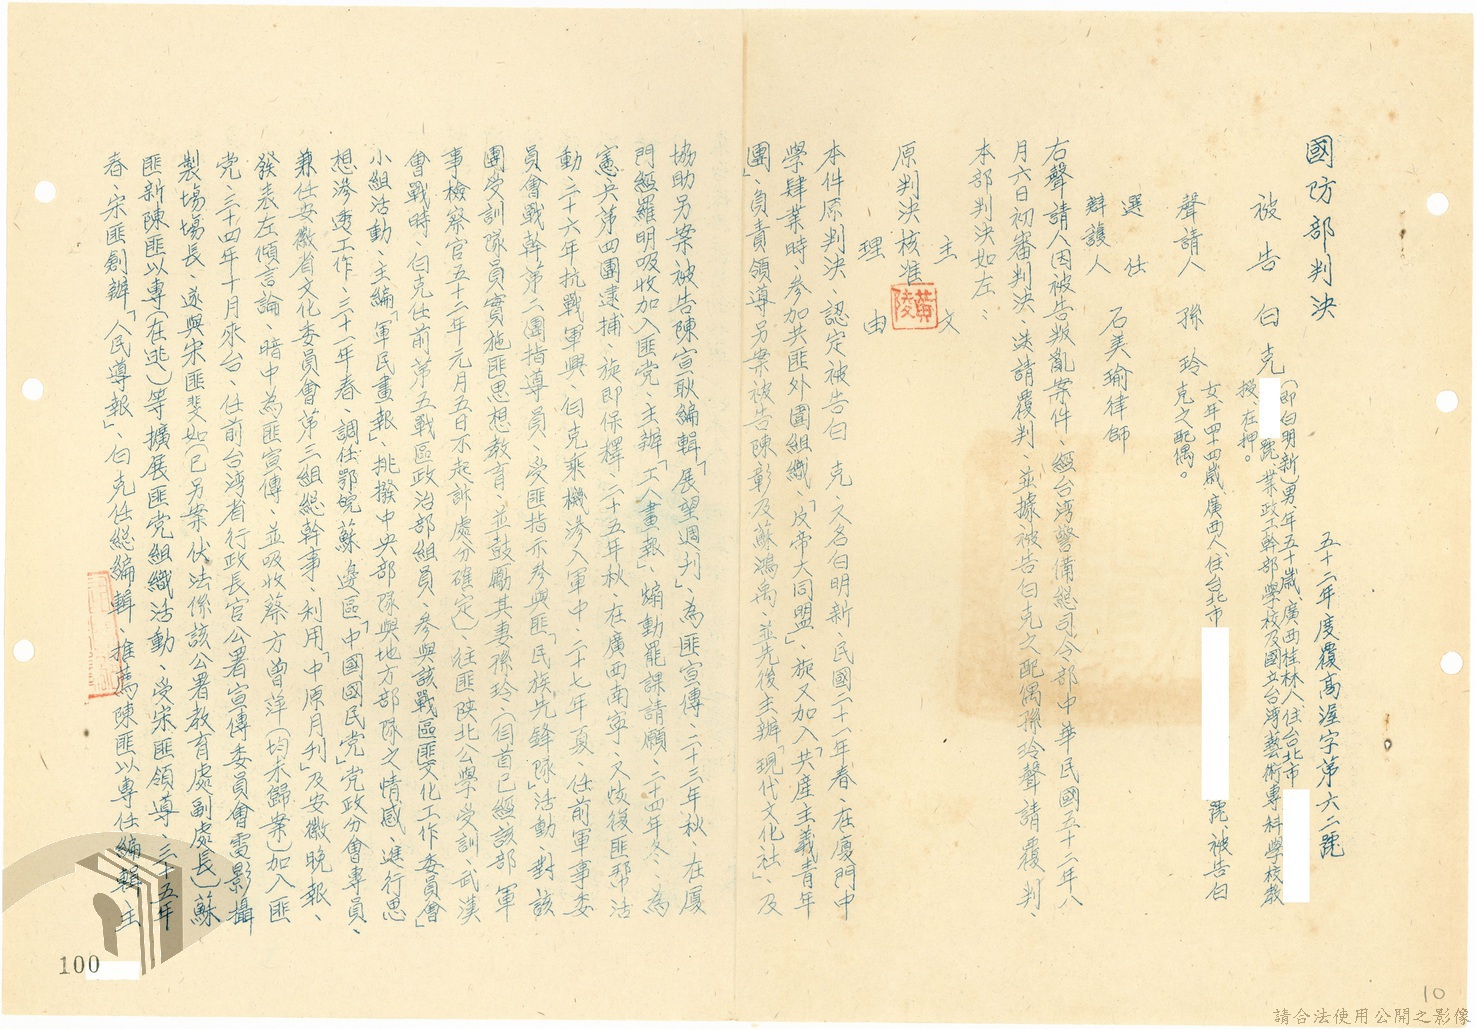 國防部判決
五十二年度覆高渥字第六二號
被告 白克(即白明新)男、年五十歲、廣西桂林人、住台北市
號、業政工幹部學校及國立台灣藝術專科學校教
授、在押。
聲請人 孫玲 女、年四十四歲、廣西人、住台北市 號、被告白
克之配偶。
選任
辯護人 石美瑜律師
右聲請人因被告叛亂案件、經台灣警備總司令部中華民國五十二年八
月六日初審判決、送請覆判、並據被告白克之配偶孫玲聲請覆判、
本部判決如左:
主文
原判決核准
黃陵
理由
本件原判決、認定被告白克、又名白明新、民國二十一年春、在廈門中
學肄業時、參加共匪外圍組織、「反帝大同盟」、旋又加入「共產主義青年
團」、負責領導另案被告陳彰及蘇鴻禹、並先後主辦「現代文化社」、及
協助另案被告陳宣耿編輯「展望週刊」、為匪宣傳、二十三年秋、在廈
門經羅明吸收加入匪党、主辦「工人畫報」、煽動罷課請願、二十四年冬、為
憲兵第四團逮捕、旋即保釋、二十五年秋、在廣西南寧、又恢復匪幫活
動、二十六年抗戰軍興、白克乘機滲入軍中、二十七年夏、任前軍事委
員會戰幹第二團指導員、受匪指示參與匪「民族先鋒隊」活動、對該
團受訓隊員實施匪思想教育、並鼓勵其妻孫玲、(自首已經該部軍
事檢察官五十二年元月五日不起訴處分確定)、往匪陝北公學受訓、武漢
會戰時、白克任前第五戰區政治部組員、參與該戰區匪「文化工作委員會」
小組活動、主編「軍民畫報」、挑撥中央部隊與地方部隊之情感、進行思
想滲透工作、三十一年春、調任鄂皖蘇邊區「中國國民党」党政分會專員、
兼任安徽省文化委員會第三組總幹事、利用「中原月刊」及安徽晚報、
發表左傾言論、暗中為匪宣傳、並吸收蔡方曾萍(均未歸案)加入匪
党、三十四年十月來台、任前台湾省行政長官公署宣傳委員會電影攝
製場場長、遂與宋匪斐如(已另案伏法係該公署教育處副處長)蘇
匪新陳匪以專(在逃)等擴展匪党組織活動、受宋匪領導、三十五年
春、宋匪創辦「人民導報」、白克任總編輯、推薦陳匪以專任編輯、主
100
10
請合法使用公開之影像